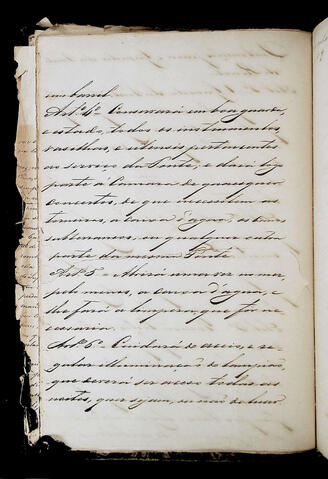 um barril.
Artº 4º Conservará em boa guarda,
e estado, todos os instrumentos,
vasilhas, e utensis pertencentes
ao serviço da Fonte, e dará logo
parte á Camara de quaesquer
concertos, de que necessitem as
torneiras, a caixa d'agoa, os canos
subterraneos, ou qualquer outra
parte da mesma Fonte.
Artº 5º Abrirá uma vez em ca
pel mezes, a caixa d'agua, e
lhe fará a limpeza, que for ne
cessaria.
Artº 6º Cuidará do aceio, e re
gular illuminação do lampião,
que deverá ser aceso todas as
noites, quer sejam, ou não de luar